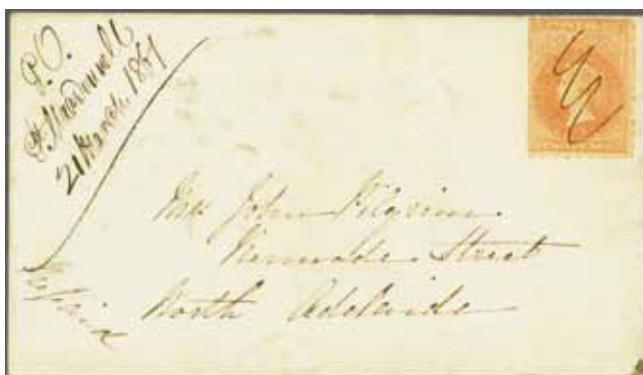 P.O.
Pt. Macdonnell
21 March 1861
Mr John Pilgrim
Kermode Street
North Adelaide